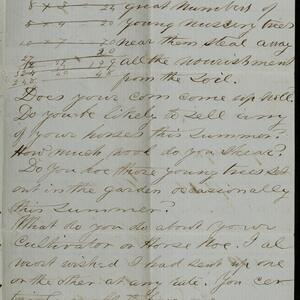 8 x 3 24 great numbers of
8 x 4 20 young nursery trees
10 x 7 70 near them steal away
all the nourishment
from the soil.
Does your corn come up well.
Do you be likely to sell any
of your horses this summer?
How much wool do you shear?
Do you hoe those young trees set
out in the garden occasionally
this summer?
What do you do about your
Cultivator or Horse Hoe. I al
most wished I had sent up one
or the other at any rate. You cer